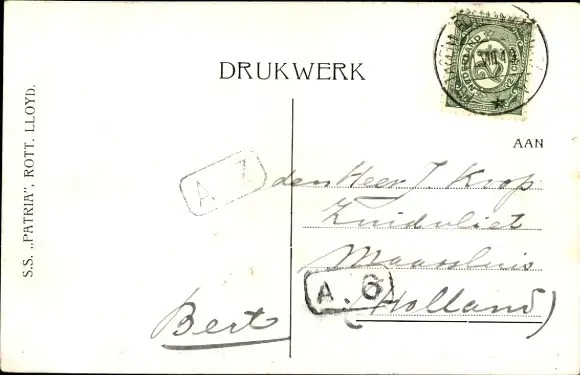 DRUKWERK
S.S. „PATRIA", ROTT. LLOYD.
NEDERLAND
AAN
A 7
den Heer J. Krop
Zuidvliet
Maassluis
A. 6
(Holland)
Bert